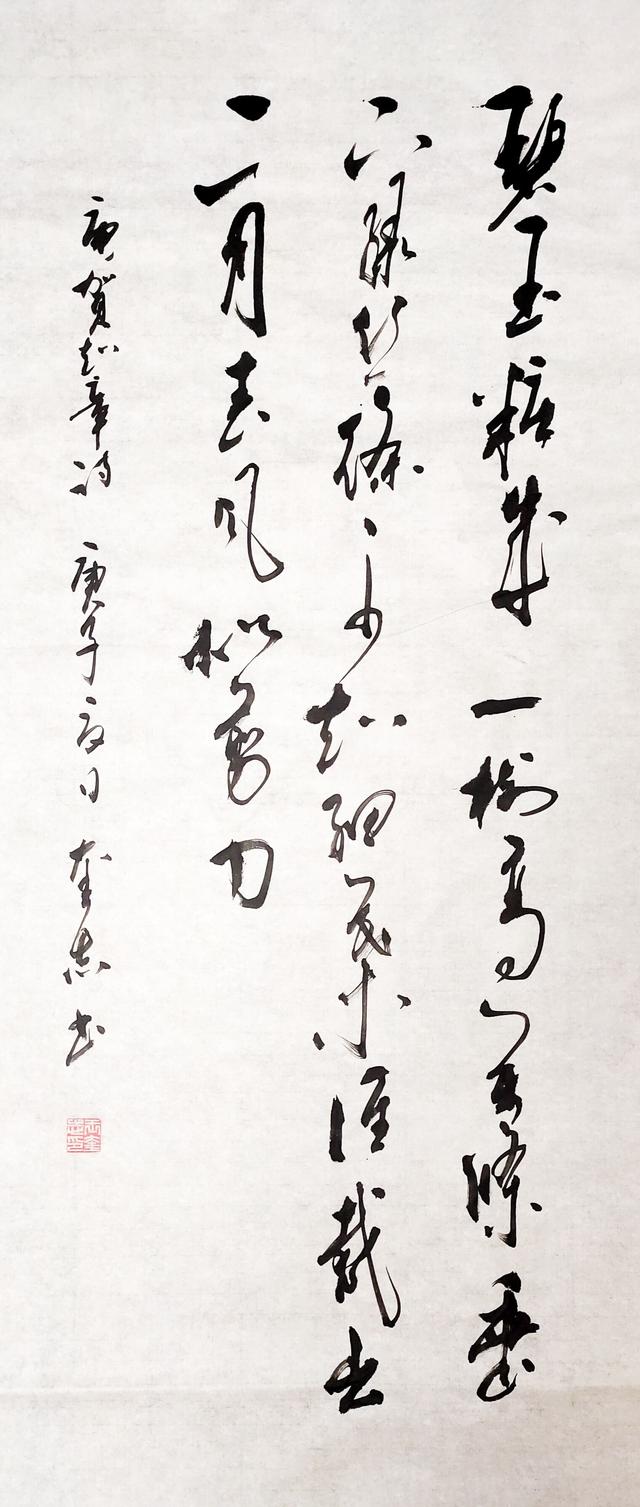 碧玉粧成一樹高萬條垂
下綠絲絛不知細葉誰裁出
二月春風似剪刀
唐賀知章詩 庚子夏日 奎志書